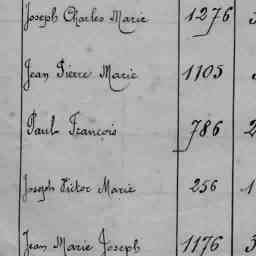 Joseph Charles Marie 1276 3
Jean Pierre Marie 1105
Paul François 786 2
Joseph Victor Marie 256 1
Jean Marie Joseph 1176 3